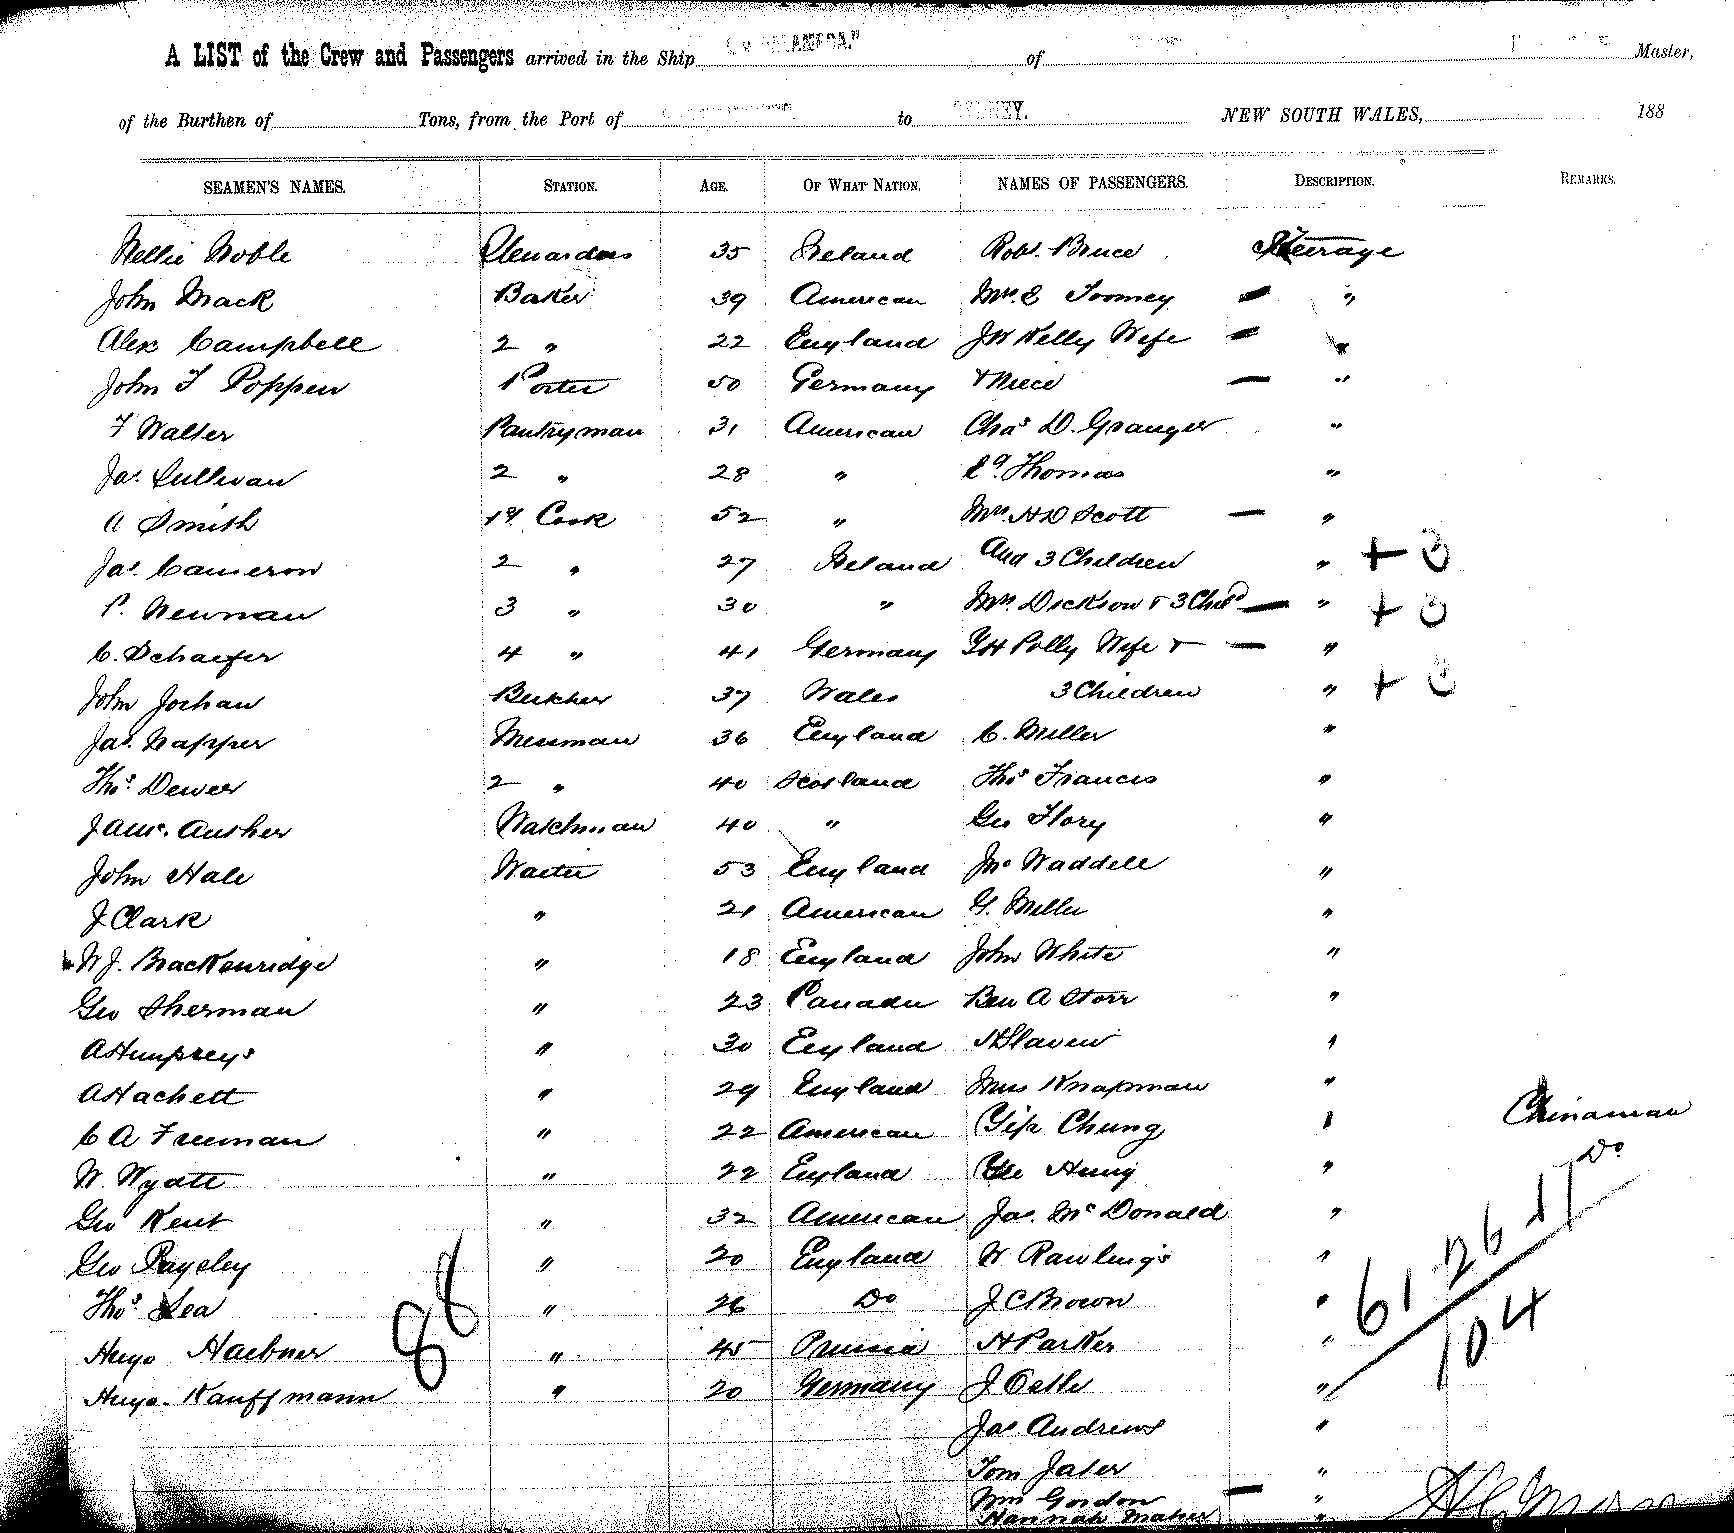 A LIST of the Crew and Passengers arrived in the Ship of Master,
of the Burthen of Tons, from the Port of to SYDNEY. NEW SOUTH WALES, 188
SEAMEN'S NAMES. STATION. AGE. OF WHAT NATION. NAMES OF PASSENGERS. DESCRIPTION. REMARKS.
Nellie Noble Stewardess 35 Ireland Robt. Bruce Steerage
John Mack Baker 39 American Mrs. E Toomey — "
Alex Campbell 2 " 22 England J W Kelly Wife — "
John F Poppen Porter 50 Germany & Niece — "
F Walter Pantryman 31 American Chas D. Granger "
Jas. Sullivan 2 " 28 " Thomas "
A Smith 1st Cook 52 " Mrs. H D Scott — "
Jas. Cameron 2 " 27 Ireland And 3 Children " + 3
P. Newman 3 " 30 " Mrs Dickson & 3 Chil — " + 3
C. Schaefer 4 " 41 Germany Polly Wife & — "
John Jochan Butcher 37 Wales 3 Children " + 3
Jas. Napper Messman 36 England C. Miller "
Thos. Dewer 2 " 40 Scotland Thos Francis "
Watchman 40 " Geo Flory "
John Hale Waiter 53 England Jno Waddell "
J Clark " 21 American G. Miller "
W J. Brackenridge " 18 England John White "
Geo Sherman " 23 Canada Ben A Storr "
A Humpreys " 30 England H Slavin "
A Hachett " 29 England Knapman "
C A Freeman " 22 American Yip Chung " Chinaman
W. Wyatt " 22 England Yee Hung " Do
Geo Kent " 32 American Jas. McDonald "
Geo Payeley " 20 England W Rawlings "
Thos. Lea " 26 Do J C Brown "
Hugo Haebner " 45 Prussia H Parker "
Hugo. Kauffmann " 20 Germany J. "
Jas Andrews "
Tom Jaler "
Wm Gordon — "
Hannah Maher "
88
61 26
104